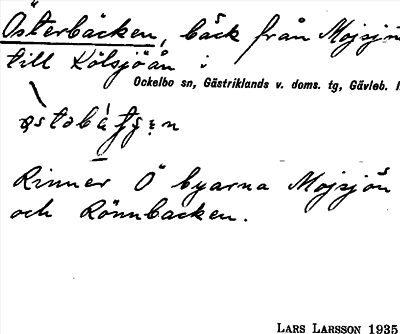 Österbäcken, bäck från Mojsjön
till Kölsjöån i
Ockelbo sn, Gästriklands v. doms. tg, Gävleb. l
Rinner Ö byarna Mojsjön
och Rönnbacken.
LARS LARSSON 1935